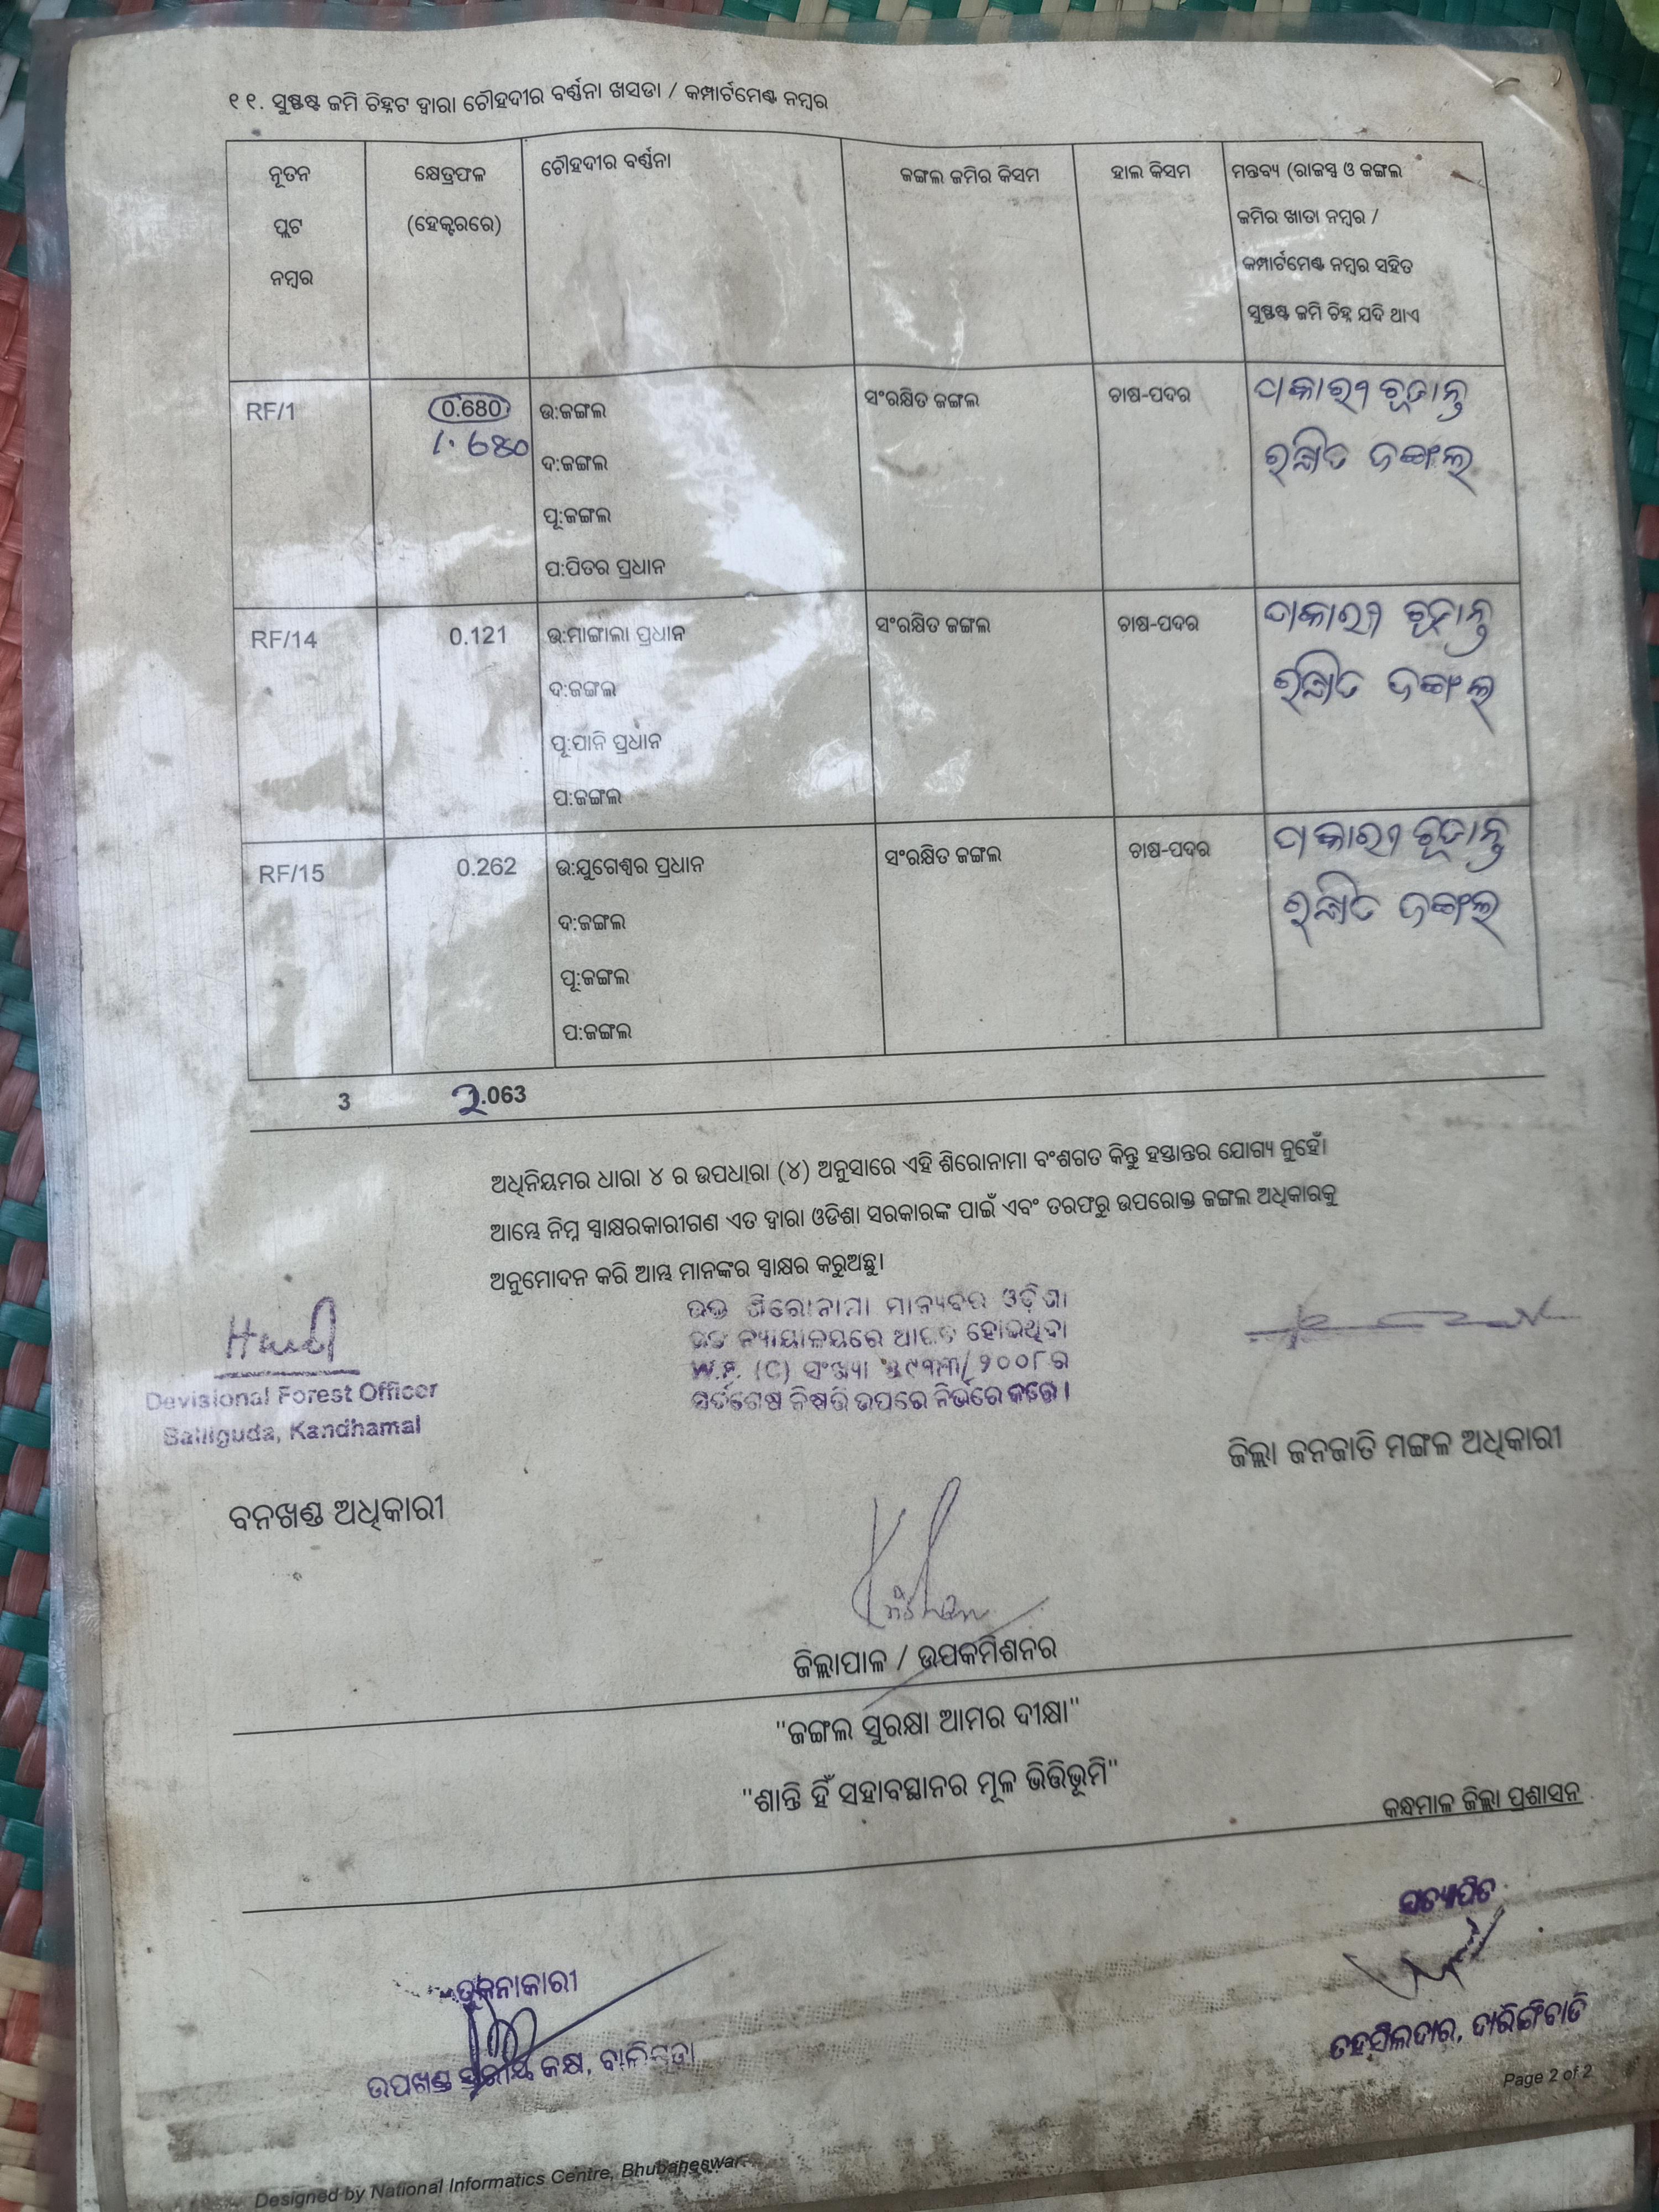 ୧୧. ସୁଷ୍ପଷ୍ଟ ଜମି ଚିହ୍ନଟ ଦ୍ୱାରା ଚୌହଦୀର ବର୍ଣ୍ଣନା ଖସଡା / କମ୍ପାର୍ଟମେଣ୍ଟ ନମ୍ବର
ନୂତନ ପ୍ଲଟ ନମ୍ବର
କ୍ଷେତ୍ରଫଳ (ହେକ୍ଟରରେ)
ଚୌହଦୀର ବର୍ଣ୍ଣନା
ଜଙ୍ଗଲ ଜମିର କିସମ
ହାଲ କିସମ
ମନ୍ତବ୍ୟ (ରାଜସ୍ୱ ଓ ଜଙ୍ଗଲ
ଜମିର ଖାତା ନମ୍ବର /
କମ୍ପାର୍ଟମେଣ୍ଟ ନମ୍ବର ସହିତ
ସୁଷ୍ପଷ୍ଟ ଜମି ଚିହ୍ନ ଯଦି ଥାଏ
RF/1
0.680
1.680
ଉ:ଜଙ୍ଗଲ
ଦ:ଜଙ୍ଗଲ
ପୂ:ଜଙ୍ଗଲ
ପ:ପିତର ପ୍ରଧାନ
ସଂରକ୍ଷିତ ଜଙ୍ଗଲ
ଚାଷ-ପଦର
ରକ୍ଷିତ ଜଙ୍ଗଲ
RF/14
0.121
ଉ:ମାଙ୍ଗାଲା ପ୍ରଧାନ
ଦ:ଜଙ୍ଗଲ
ପୂ:ପାନି ପ୍ରଧାନ
ପ:ଜଙ୍ଗଲ
ସଂରକ୍ଷିତ ଜଙ୍ଗଲ
ଚାଷ-ପଦର
ରକ୍ଷିତ ଜଙ୍ଗଲ
RF/15
0.262
ଉ:ଯୁଗେଶ୍ୱର ପ୍ରଧାନ
ଦ:ଜଙ୍ଗଲ
ପୂ:ଜଙ୍ଗଲ
ପ:ଜଙ୍ଗଲ
ସଂରକ୍ଷିତ ଜଙ୍ଗଲ
ଚାଷ-ପଦର
ରକ୍ଷିତ ଜଙ୍ଗଲ
3 2.063
ଅଧିନିୟମର ଧାରା ୪ ର ଉପଧାରା (୪) ଅନୁସାରେ ଏହି ଶିରୋନାମା ବଂଶଗତ କିନ୍ତୁ ହସ୍ତାନ୍ତର ଯୋଗ୍ୟ ନୁହେଁ।
ଆମ୍ଭେ ନିମ୍ନ ସ୍ୱାକ୍ଷରକାରୀଗଣ ଏତ ଦ୍ୱାରା ଓଡିଶା ସରକାରଙ୍କ ପାଇଁ ଏବଂ ତରଫରୁ ଉପରୋକ୍ତ ଜଙ୍ଗଲ ଅଧିକାରକୁ
ଅନୁମୋଦନ କରି ଆମ୍ଭ ମାନଙ୍କର ସ୍ୱାକ୍ଷର କରୁଅଛୁ।
ଉକ୍ତ ଶିରୋନାମା ମାନ୍ୟବର ଓଡ଼ିଶା
ଉଚ୍ଚ ନ୍ୟାୟାଳୟରେ ଆଗତ ହୋଇଥିବା
W.P. (C) ସଂଖ୍ୟା ୪୯୩୩/୨୦୦୮ର
ସର୍ବଶେଷ ନିଷ୍ପତ୍ତି ଉପରେ ନିର୍ଭରେ କରେ।
Devisional Forest Officer
Balliguda, Kandhamal
ବନଖଣ୍ଡ ଅଧିକାରୀ
ଜିଲ୍ଲା ଜନଜାତି ମଙ୍ଗଳ ଅଧିକାରୀ
ଜିଲ୍ଲାପାଳ / ଉପକମିଶନର
"ଜଙ୍ଗଲ ସୁରକ୍ଷା ଆମର ଦୀକ୍ଷା"
"ଶାନ୍ତି ହିଁ ସହାବସ୍ଥାନର ମୂଳ ଭିତ୍ତିଭୂମି"
କନ୍ଧମାଳ ଜିଲ୍ଲା ପ୍ରଶାସନ
ସତ୍ୟାପିତ
ତହସିଲଦାର, ଦାରିଙ୍ଗିବାଡି
ତୁଳନାକାରୀ
ଉପଖଣ୍ଡ ସ୍ତରୀୟ କକ୍ଷ, ବାଲିଗୁଡା
Page 2 of 2
Designed by National Informatics Centre, Bhubaneswar